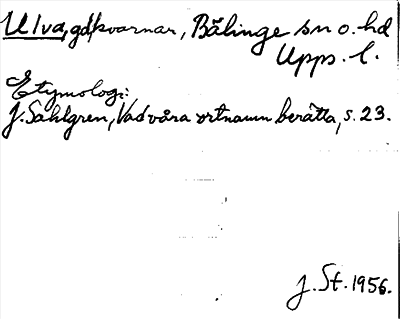 Ulva, gd/kvarnar, Bälinge sn o. hd
Upps. l.
Etymologi:
J. Sahlgren, Vad våra ortnamn berätta, s. 23.
J. St. 1956.